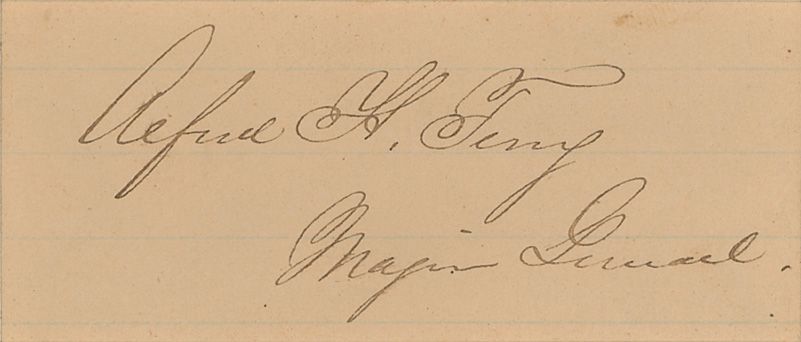 Alfred H. Terry
Major General.